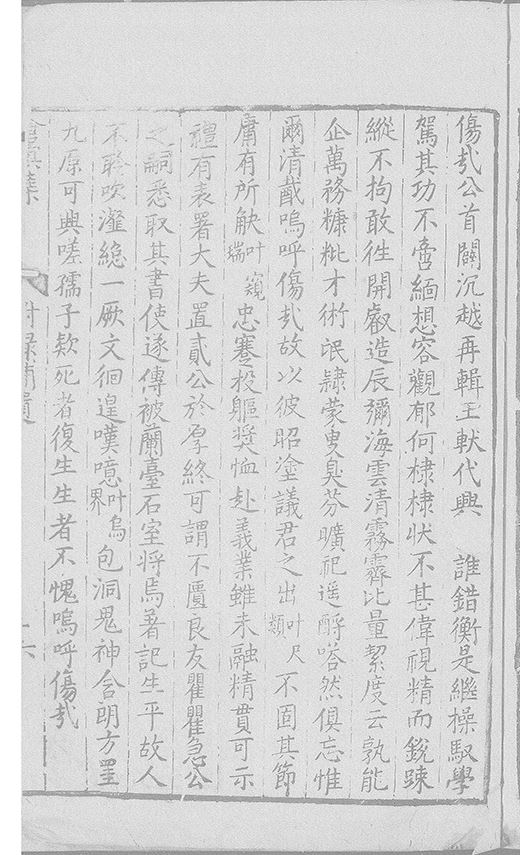 傷㢤公首闢沉越再輯玉猷代興　誰錯衡是繼操馭學
駕其功不啻緬想容觀郁何棣棣狀不甚偉視精而銳踈
縱不拘敢徃開叡造辰彌海雲清霧霽比量絜度云孰能
企萬務糠粃才術氓𨽻蒙叟臭芬曠祀遥酹嗒然俱忘惟
爾清戭嗚呼傷㢤故以彼昭塗議君之出叶尺類不固其節
庸有所觖叶窺端忠蹇投軀奬恤赴義業雖未融精貫可示
禮有表署大夫置貳公於孕終可謂不匱良友瞿瞿急公
之嗣悉取其書使遂傳被蘭臺石室將焉著記生平故人
不聆吹瀣絶一厥文徊遑嘆噫叶界烏包洞鬼神含明方置
九原可興嗟孺子欵死者復生生者不愧嗚呼傷㢤
附錄補遺